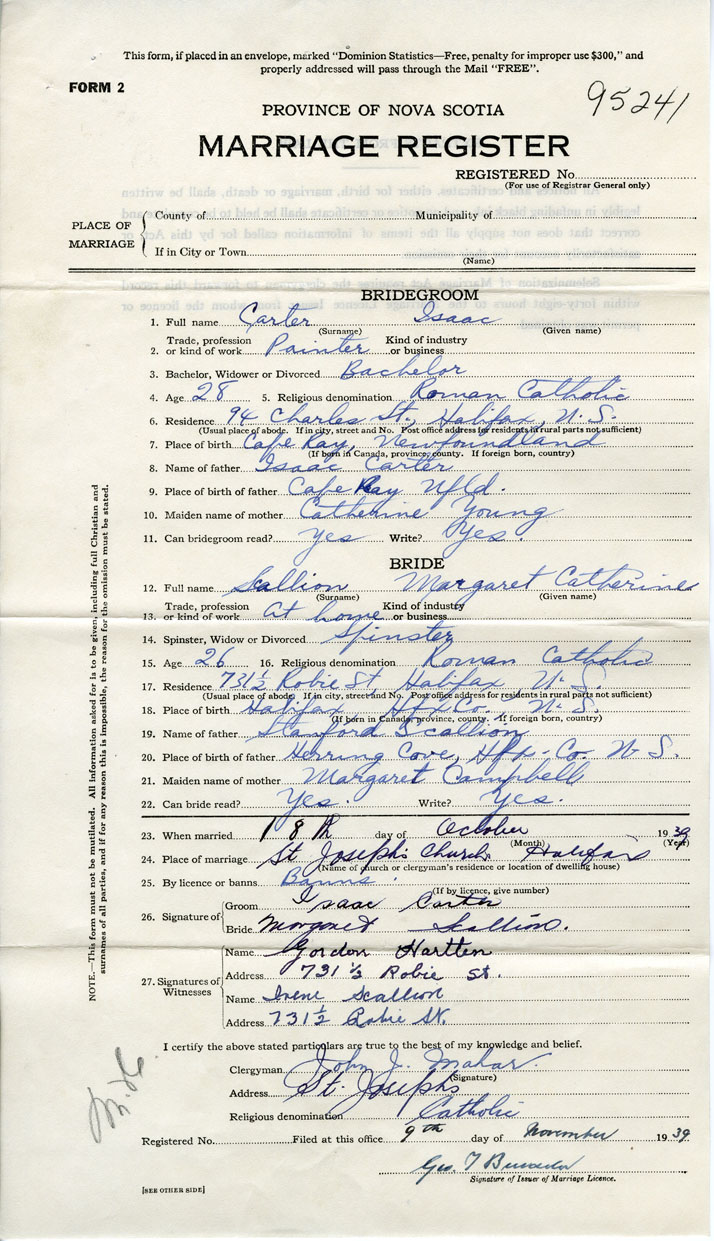 This form, if placed in an envelope, marked "Dominion Statistics—Free, penalty for improper use $300," and
properly addressed will pass through the Mail "FREE".
FORM 2
95241
PROVINCE OF NOVA SCOTIA
MARRIAGE REGISTER
REGISTERED No.
(For use of Registrar General only)
PLACE OF MARRIAGE
County of Municipality of
If in City or Town
(Name)
BRIDEGROOM
1. Full name Carter Isaac
(Surname) (Given name)
2. Trade, profession or kind of work Painter Kind of industry or business
3. Bachelor, Widower or Divorced Bachelor
4. Age 28 5. Religious denomination Roman Catholic
6. Residence 94 Charles St., Halifax, N.S.
(Usual place of abode. If in city, street and No. Post office address for residents in rural parts not sufficient)
7. Place of birth Cape Ray, Newfoundland
(If born in Canada, province, county. If foreign born, country)
8. Name of father Isaac Carter
9. Place of birth of father Cape Ray Nfld.
10. Maiden name of mother Catherine Young
11. Can bridegroom read? Yes Write? Yes.
BRIDE
12. Full name Scallion Margaret Catherine
(Surname) (Given name)
13. Trade, profession or kind of work At home Kind of industry or business
14. Spinster, Widow or Divorced Spinster
15. Age 26 16. Religious denomination Roman Catholic
17. Residence 731½ Robie St, Halifax, N.S.
(Usual place of abode. If in city, street and No. Post office address for residents in rural parts not sufficient)
18. Place of birth Halifax Hfx Co. N.S.
(If born in Canada, province, county. If foreign born, country)
19. Name of father Stanford Scallion
20. Place of birth of father Herring Cove, Hfx-Co. N S.
21. Maiden name of mother Margaret Campbell
22. Can bride read? Yes. Write? Yes.
23. When married 18th day of October 1939
(Month) (Year)
24. Place of marriage St Joseph's Church, Halifax
(Name of church or clergyman's residence or location of dwelling house)
25. By licence or banns Banns
(If by licence, give number)
26. Signature of
Groom Isaac Carter
Bride Margaret Scallion.
27. Signatures of Witnesses
Name Gordon Hartlen
Address 731 ½ Robie St.
Name Irene Scallion
Address 731½ Robie St.
I certify the above stated particulars are true to the best of my knowledge and belief.
Clergyman John J. Mahar.
(Signature)
Address St. Josephs
Religious denomination Catholic
Registered No. Filed at this office 9th day of November 1939
Geo. T
Signature of Issuer of Marriage Licence.
[SEE OTHER SIDE]
NOTE.—This form must not be mutilated. All Information asked for is to be given, including full Christian and
surnames of all parties, and if for any reason this is impossible, the reason for the omission must be stated.